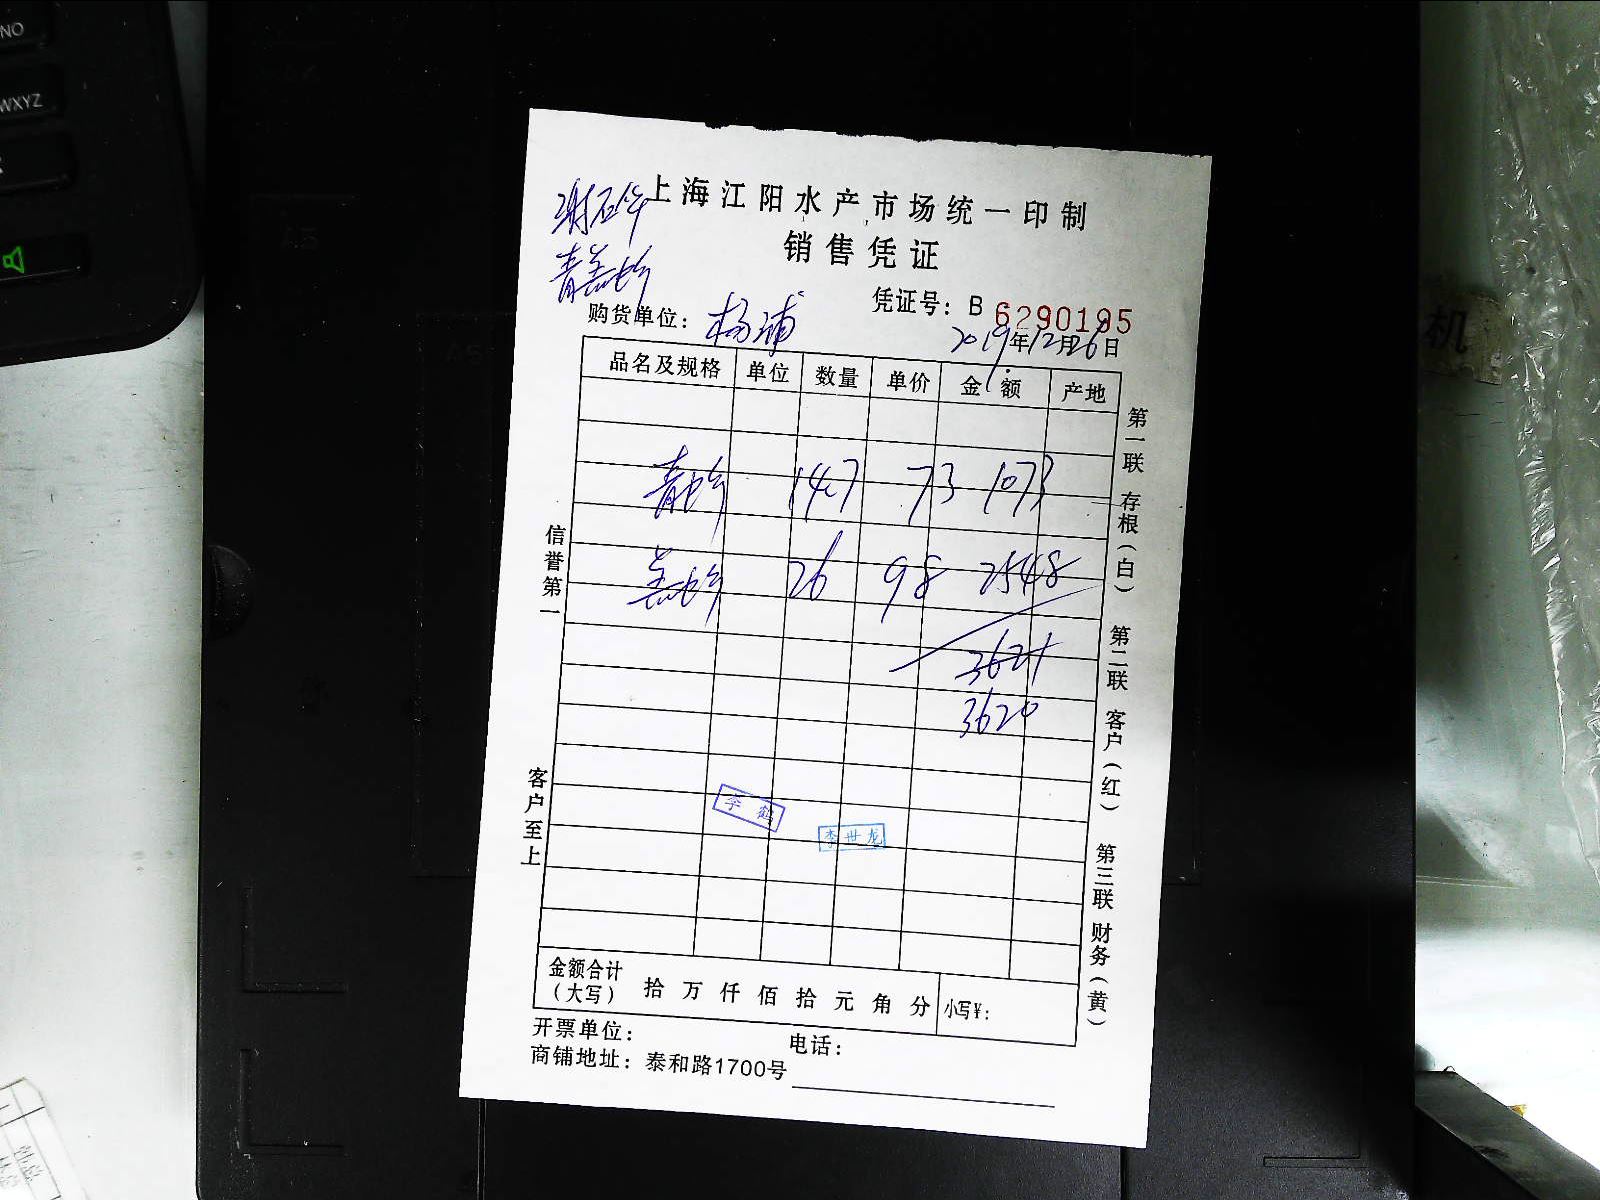 NO
WXYZ
A5
机
上海江阳水产市场统一印制
销售凭证
凭证号：B 6290195
购货单位：杨浦
2019年12月26日
品名及规格 单位 数量 单价 金额 产地
青 14.7 73 1073
26 98 2548
3621
3620
李鹤
李世龙
信誉第一
客户至上
第一联 存根（白）
第二联 客户（红）
第三联 财务（黄）
金额合计（大写） 拾 万 仟 佰 拾 元 角 分 小写¥：
开票单位： 电话：
商铺地址：泰和路1700号